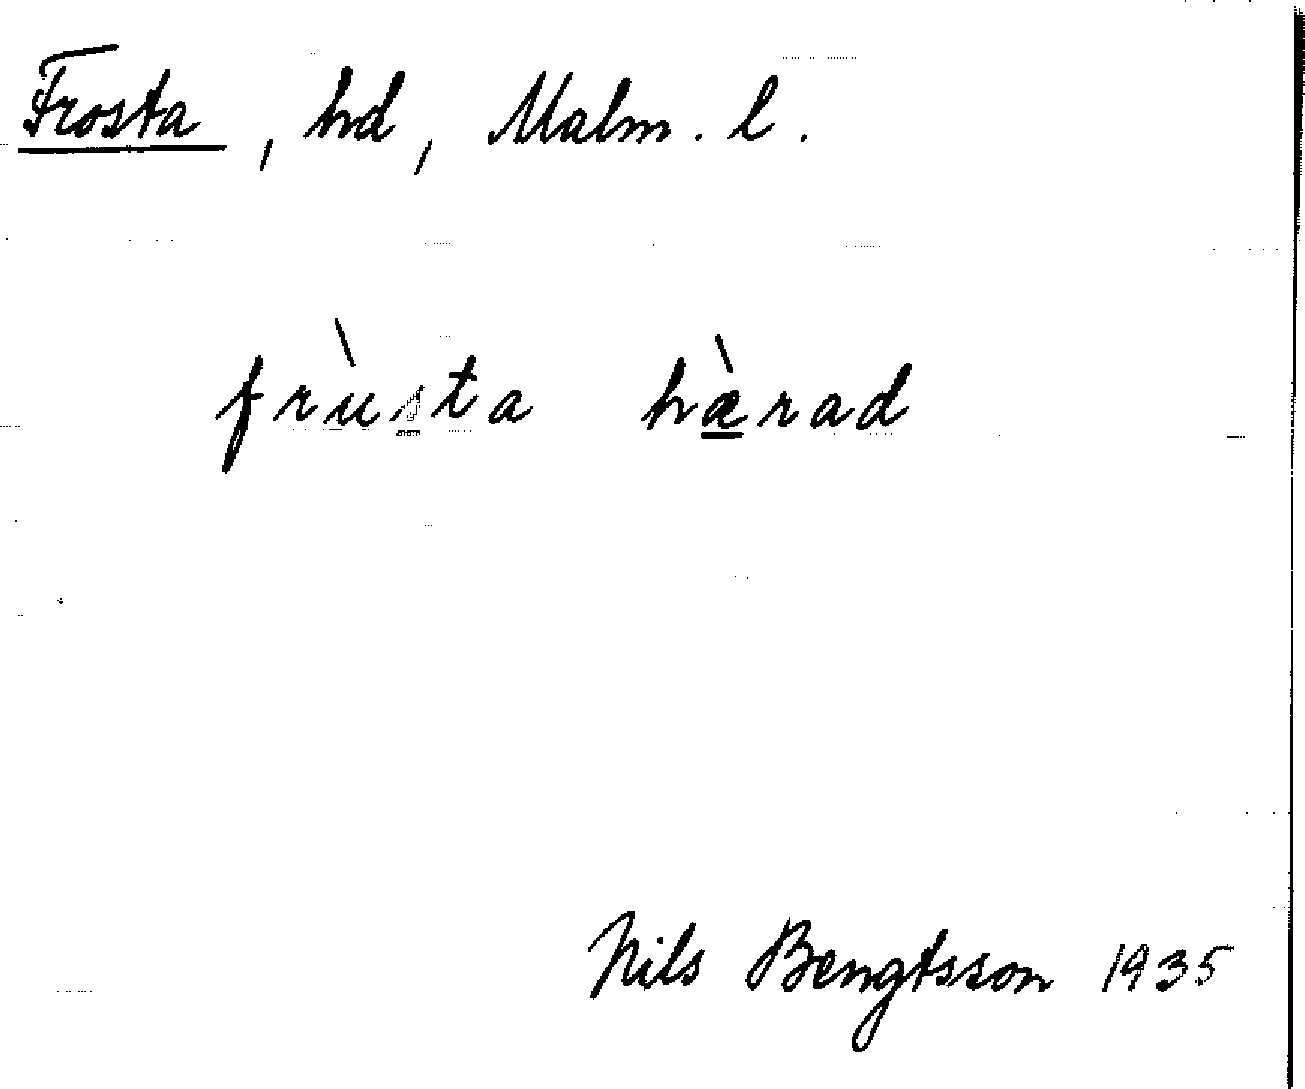 Frosta, hd, Malm. l.
frùsta hæ̀rad
Nils Bengtsson 1935